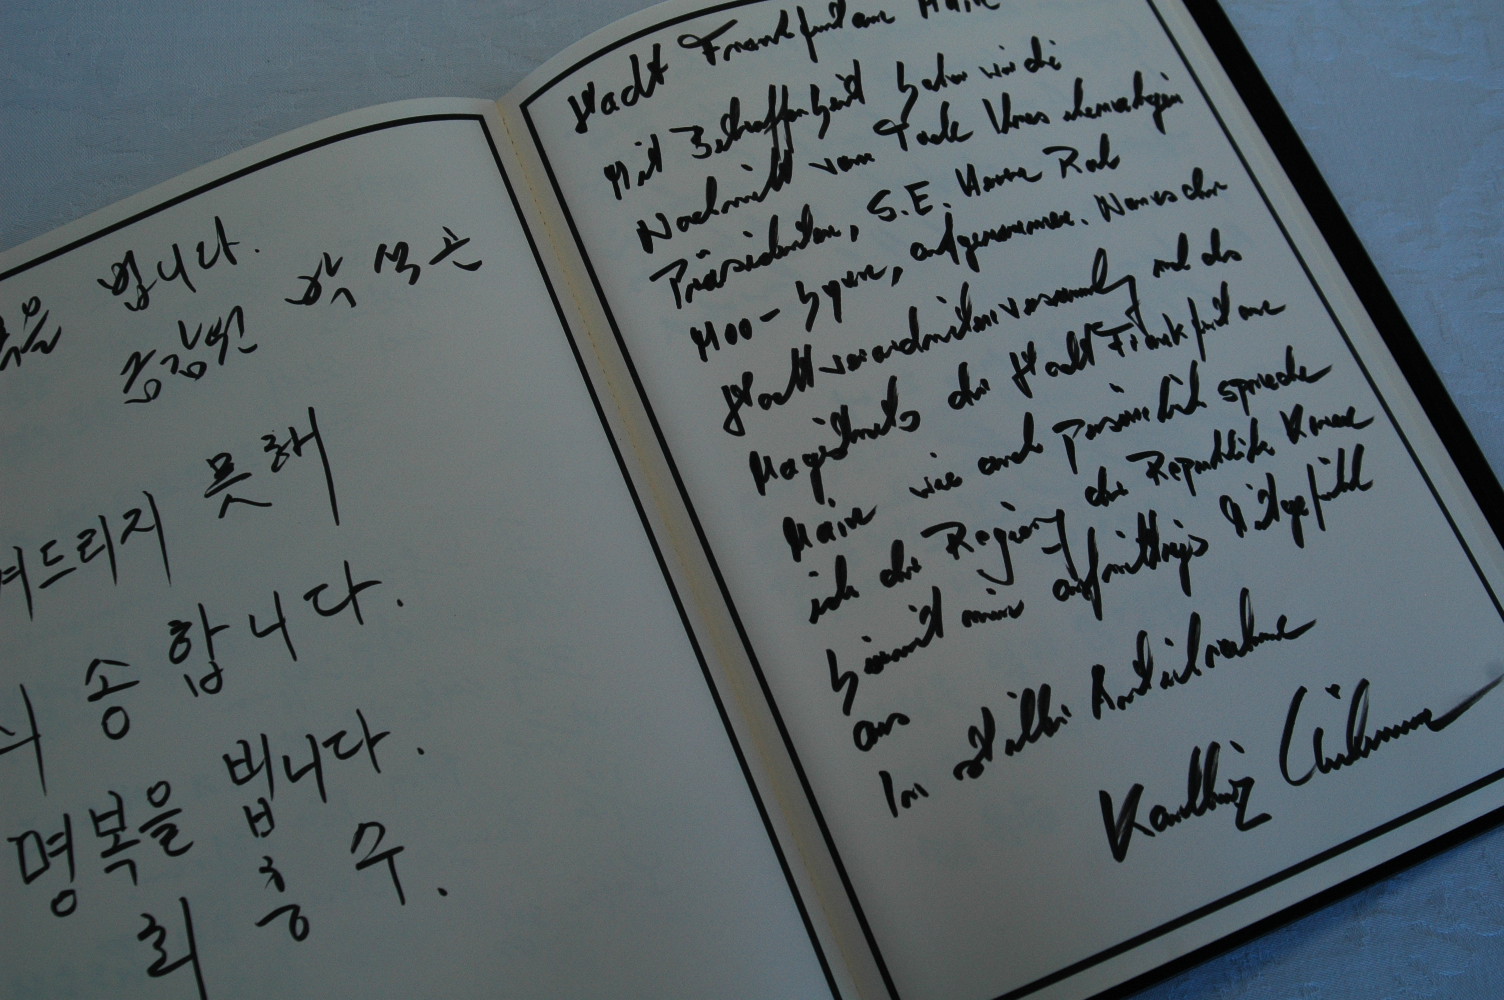 명복을 빕니다.
박석은
여드리지 못해
송합니다.
명복을 빕니다.
최흥수.
Stadt Frankfurt am Main
Mit Betroffenheit haben wir die
Nachricht vom Tode Ihres ehemaligen
Präsidenten, S.E. Herrn Roh
Moo-hyun, aufgenommen. Namens der
Stadtverordnetenversammlung und des
Magistrats der Stadt Frankfurt am
Main wie auch persönlich spreche
ich der Regierung der Republik Korea
hiermit mein aufrichtiges Mitgefühl
aus
In stiller Anteilnahme